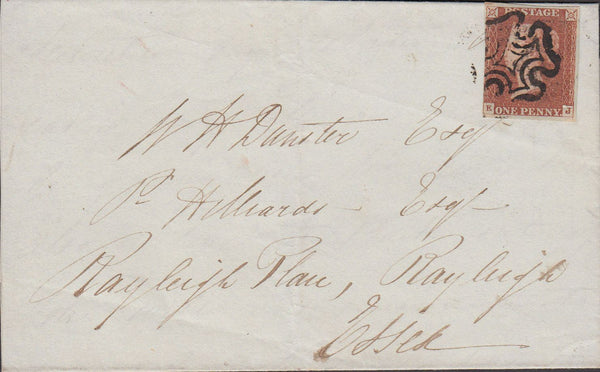 POSTAGE
E ONE PENNY J
W H Dunster Esqr
Pr Hilliards Esqr
Rayleigh Place, Rayleigh
Essex